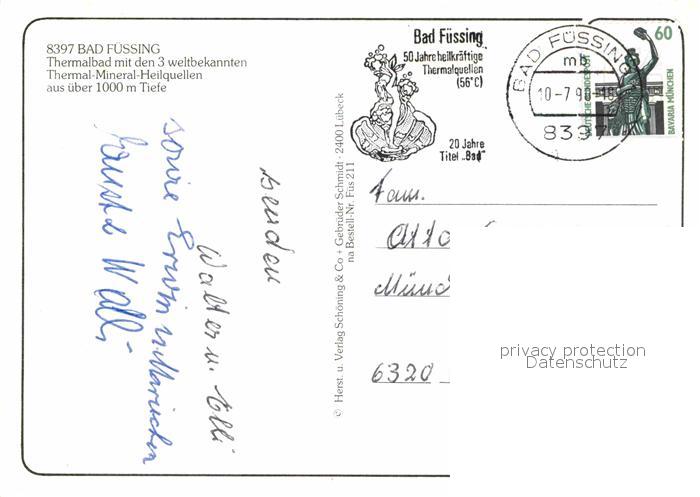 8397 BAD FÜSSING
Thermalbad mit den 3 weltbekannten
Thermal-Mineral-Heilquellen
aus über 1000 m Tiefe
Bad Füssing
50 Jahre heilkräftige
Thermalquellen
(56°C)
20 Jahre
Titel „Bad"
BAD FÜSSING
mb
10-7.90-18
8397
60
DEUTSCHE BUNDESPOST
BAVARIA MÜNCHEN
senden
Walter u. Elli
sowie Erwin
Wall
© Herst. u. Verlag Schöning & Co + Gebrüder Schmidt · 2400 Lübeck
na Bestell-Nr. Füs 211
Fam.
Otto
Münc
6320
privacy protection
Datenschutz